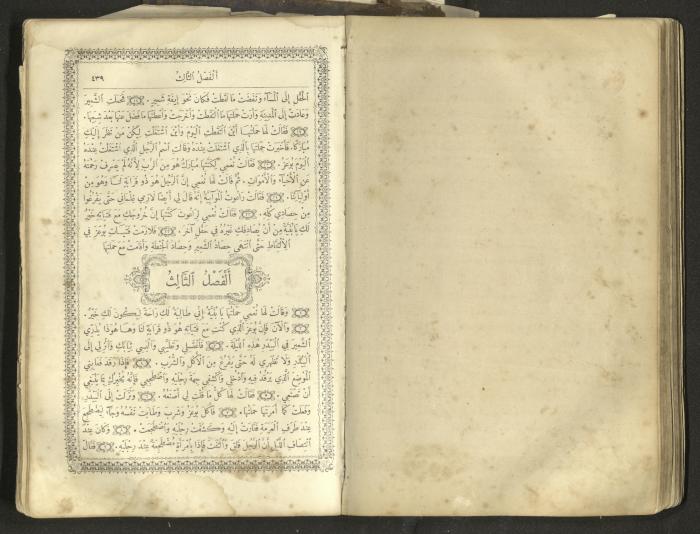 أَلْفَصْلُ الثَّالِثُ ٤٣٩
الْحَقْلِ إِلَى الْمَسَاءِ وَنَفَضَتْ مَا لَقَطَتْ فَكَانَ نَحْوَ إِيفَةِ شَعِيرٍ. فَحَمَلَتِ الشَّعِيرَ
وَعَادَتْ إِلَى الْمَدِينَةِ وَأَرَتْ حَمَاتَهَا مَا الْتَقَطَتْ وَأَخْرَجَتْ وَأَعْطَتْهَا مَا فَضَلَ عَنْهَا بَعْدَ شِبَعِهَا.
فَقَالَتْ لَهَا حَمَاتُهَا أَيْنَ الْتَقَطْتِ الْيَوْمَ وَأَيْنَ اشْتَغَلْتِ لِيَكُنْ مَنْ نَظَرَ إِلَيْكِ
مُبَارَكًا. فَأَخْبَرَتْ حَمَاتَهَا بِالَّذِي اشْتَغَلَتْ عِنْدَهُ وَقَالَتِ اسْمُ الرَّجُلِ الَّذِي اشْتَغَلْتُ عِنْدَهُ
الْيَوْمَ بُوعَزُ. فَقَالَتْ نُعْمِي لِكَنَّتِهَا مُبَارَكٌ هُوَ مِنَ الرَّبِّ لِأَنَّهُ لَمْ يَصْرِفْ رَحْمَتَهُ
عَنِ الْأَحْيَاءِ وَالْأَمْوَاتِ. ثُمَّ قَالَتْ لَهَا نُعْمِي إِنَّ الرَّجُلَ هُوَ ذُو قَرَابَةٍ لَنَا وَهُوَ مِنْ
أَوْلِيَائِنَا. فَقَالَتْ رَاعُوتُ الْمُوآبِيَّةُ إِنَّهُ قَالَ لِي أَيْضًا لَازِمِي غِلْمَانِي حَتَّى يَفْرُغُوا
مِنْ حِصَادِي كُلِّهِ. فَقَالَتْ نُعْمِي لِرَاعُوتَ كَنَّتِهَا إِنَّ خُرُوجَكِ مَعَ فَتَيَاتِهِ خَيْرٌ
لَكِ يَا بُنَيَّةِ مِنْ أَنْ يُصَادِفَكِ غَيْرُهُ فِي حَقْلٍ آخَرَ. فَلَازَمَتْ فَتَيَاتِ بُوعَزَ فِي
الِالْتِقَاطِ حَتَّى انْتَهَى حِصَادُ الشَّعِيرِ وَحِصَادُ الْحِنْطَةِ وَأَقَامَتْ مَعَ حَمَاتِهَا
أَلْفَصْلُ الثَّالِثُ
وَقَالَتْ لَهَا نُعْمِي حَمَاتُهَا يَا بُنَيَّةِ إِنِّي طَالِبَةٌ لَكِ رَاحَةً لِيَكُونَ لَكِ خَيْرٌ.
وَالْآنَ فَإِنَّ بُوعَزَ الَّذِي كُنْتِ مَعَ فَتَيَاتِهِ هُوَ ذُو قَرَابَةٍ لَنَا وَهَا هُوَذَا يُذَرِّي
الشَّعِيرَ فِي الْبَيْدَرِ هٰذِهِ اللَّيْلَةَ. فَاغْتَسِلِي وَتَطَيَّبِي وَالْبَسِي ثِيَابَكِ وَانْزِلِي إِلَى
الْبَيْدَرِ وَلَا تَظْهَرِي لَهُ حَتَّى يَفْرُغَ مِنَ الْأَكْلِ وَالشُّرْبِ. فَإِذَا رَقَدَ فَعَايِنِي
الْمَوْضِعَ الَّذِي يَرْقُدُ فِيهِ وَادْخُلِي وَاكْشِفِي جِهَةَ رِجْلَيْهِ وَاضْطَجِعِي فَإِنَّهُ يُخْبِرُكِ بِمَا يَنْبَغِي
أَنْ تَصْنَعِي. فَقَالَتْ لَهَا كُلُّ مَا قُلْتِ لِي أَصْنَعُهُ. وَنَزَلَتْ إِلَى الْبَيْدَرِ
وَفَعَلَتْ كَمَا أَمَرَتْهَا حَمَاتُهَا. فَأَكَلَ بُوعَزُ وَشَرِبَ وَطَابَتْ نَفْسُهُ وَجَاءَ لِيَضْطَجِعَ
عِنْدَ طَرَفِ الْعَرَمَةِ فَجَاءَتْ إِلَيْهِ وَكَشَفَتْ رِجْلَيْهِ وَاضْطَجَعَتْ. وَكَانَ عِنْدَ
انْتِصَافِ اللَّيْلِ أَنَّ الرَّجُلَ قَلِقَ وَالْتَفَتَ فَإِذَا بِامْرَأَةٍ مُضْطَجِعَةٍ عِنْدَ رِجْلَيْهِ. فَقَالَ